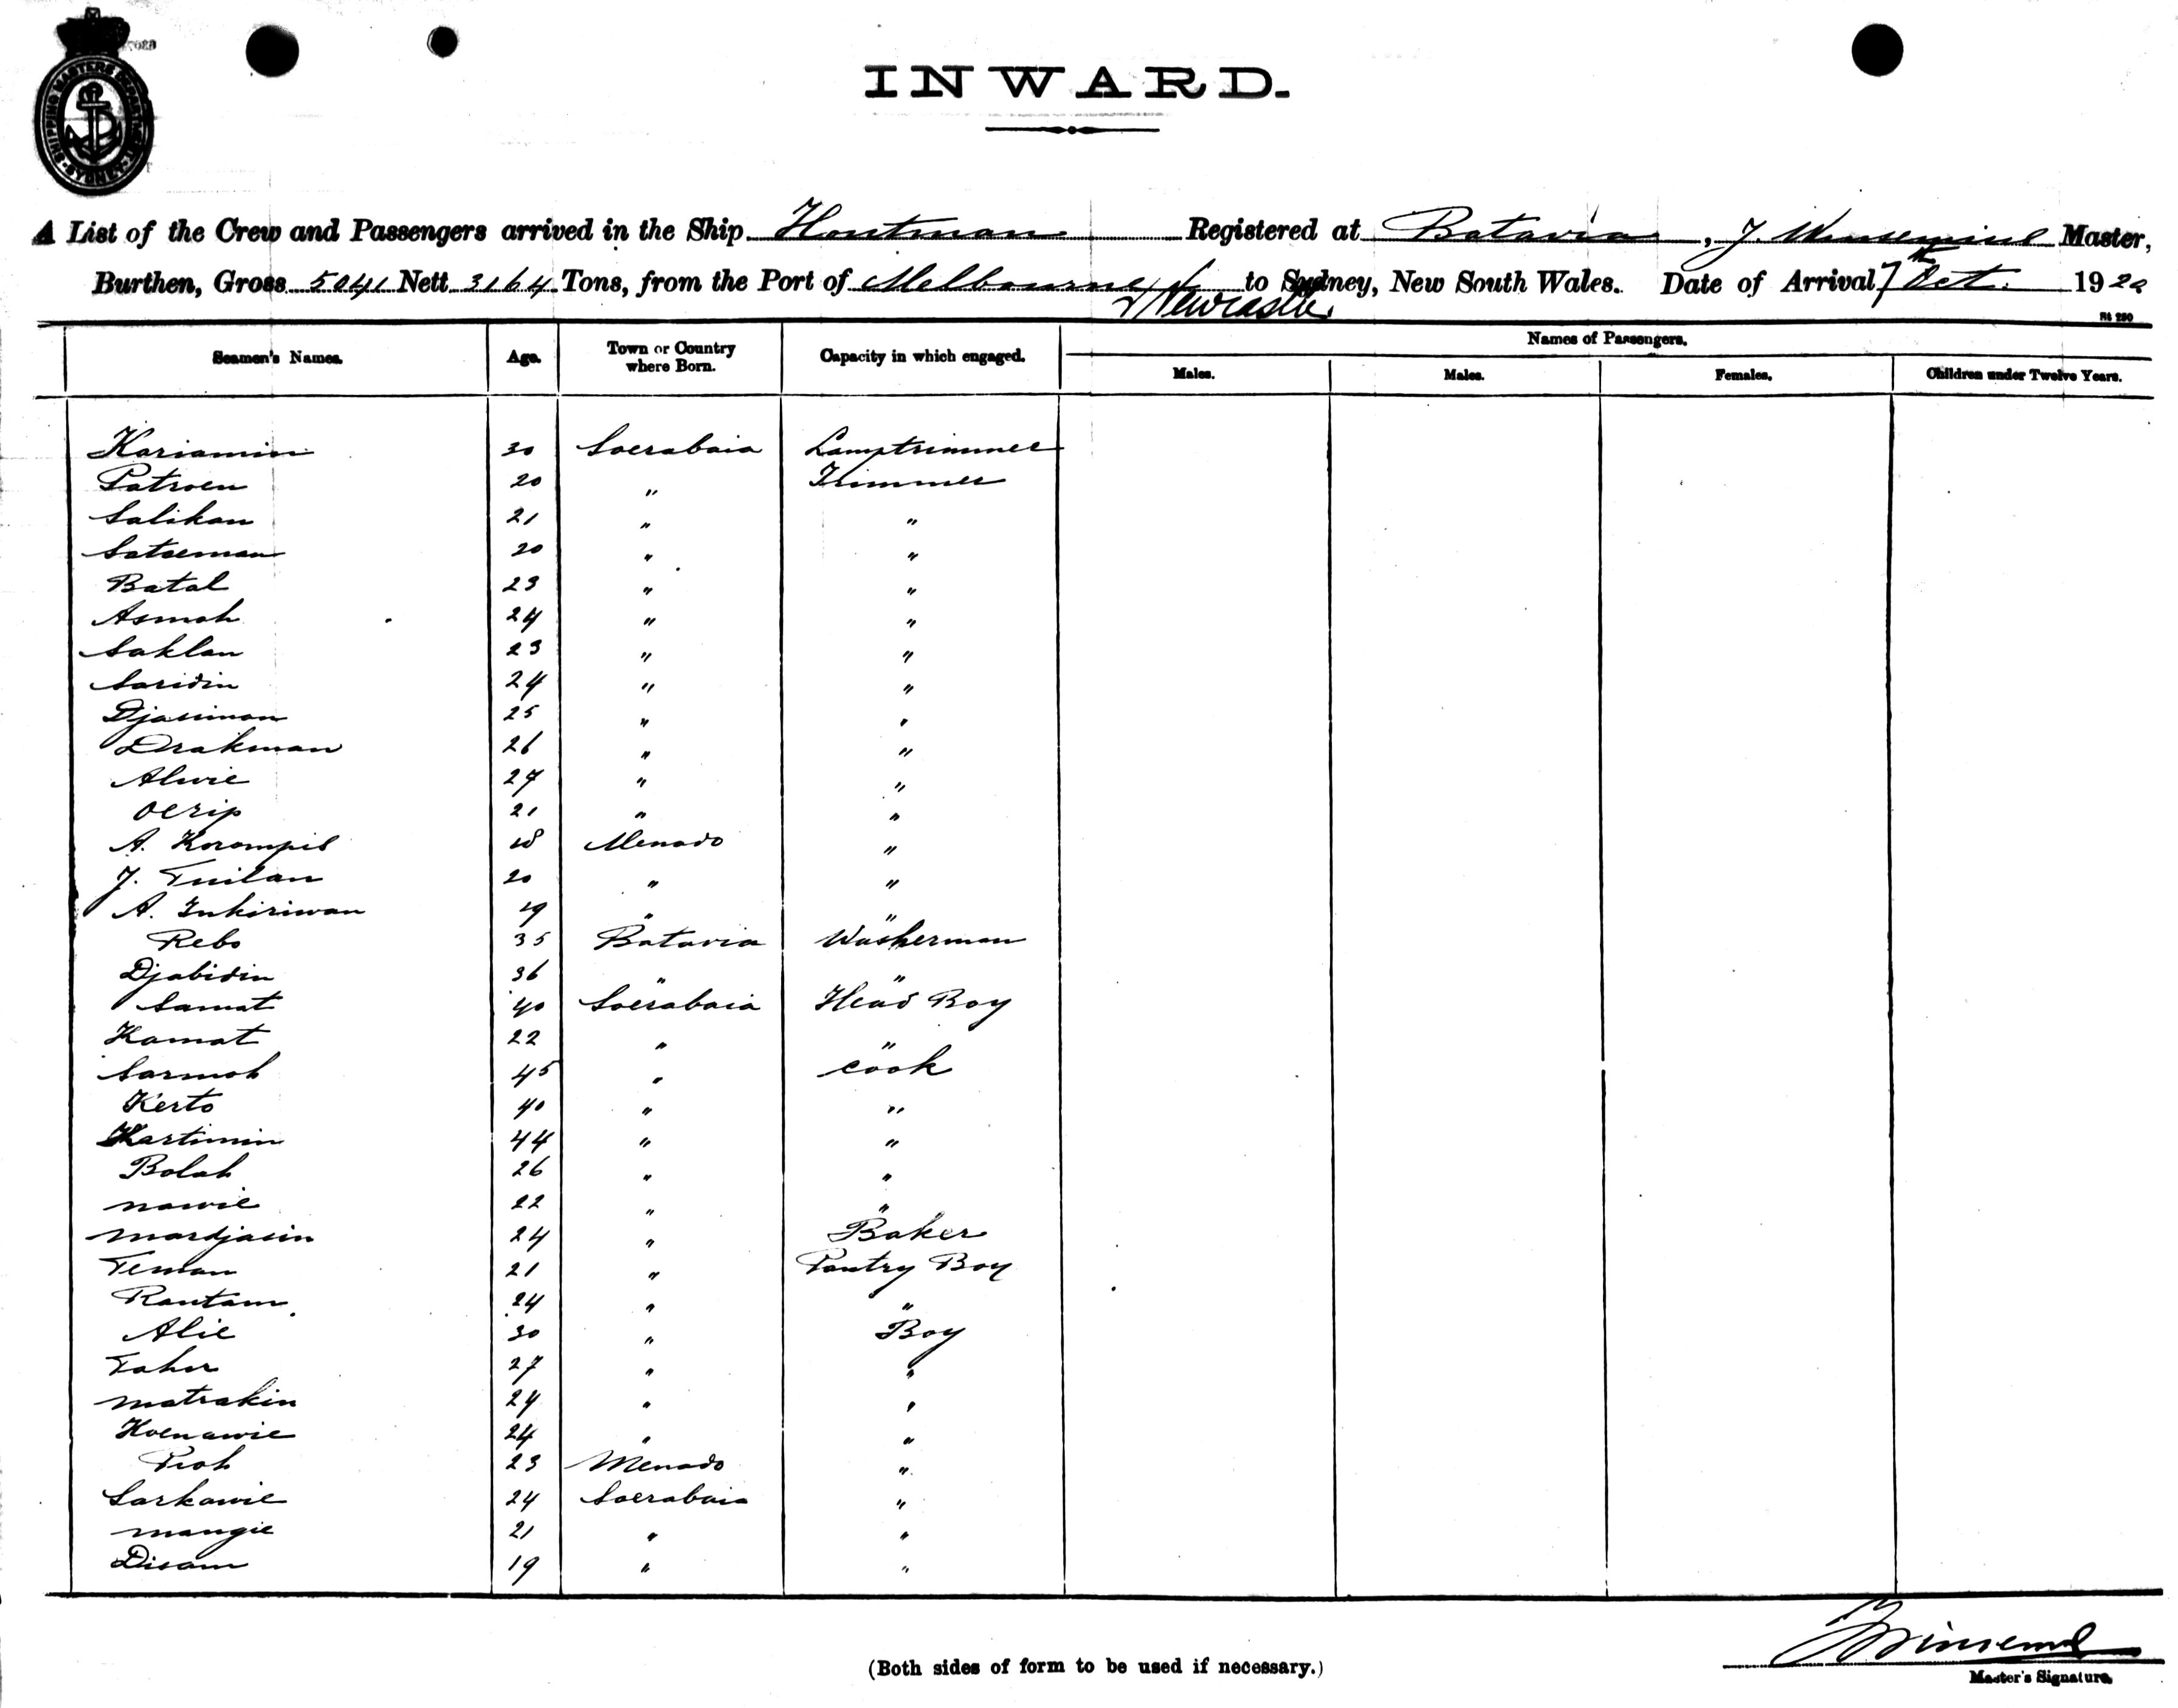 SHIPPING MASTERS SYDNEY
INWARD.
A List of the Crew and Passengers arrived in the Ship Houtman Registered at Batavia, J. Master,
Burthen, Gross 5041 Nett 3164 Tons, from the Port of Melbourne to Sydney, New South Wales. Date of Arrival 7th Oct. 1920
& Newcastle.
Seamen's Names. Age. Town or Country where Born. Capacity in which engaged. Names of Passengers.
Males. Males. Females. Children under Twelve Years.
Kariamin 30 Soerabaia Lamptrimmer
Patroen 20 " Trimmer
Salikan 21 " "
Satoeman 20 " "
Batal 23 " "
Asmah 24 " "
Saklan 23 " "
Saridin 24 " "
Djasiman 25 " "
Drakman 26 " "
Alwie 27 " "
Oerip 21 " "
A. Korompis 18 Menado "
J. Tuilan 20 " "
A. Inkiriwan 19 " "
Rebo 35 Batavia Washerman
Djabidin 36 " "
Samat 40 Soerabaia Head Boy
Kamat 22 " "
Sarmoh 45 " Cook
Kerto 40 " "
Kartimin 44 " "
Bolah 26 " "
Nawie 22 " "
Mardjasin 24 " Baker
Teman 21 " Pantry Boy
Rantam 24 " "
Alie 30 " Boy
Taher 27 " "
Matrakin 24 " "
Koenawie 24 " "
Tioh 23 Menado "
Sarkawie 24 Soerabaia "
Mangie 21 " "
Disam 19 " "
(Both sides of form to be used if necessary.)
Master's Signature.